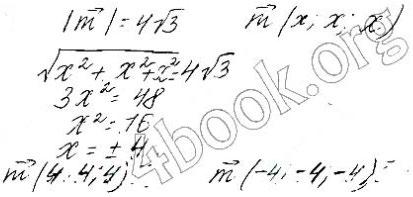 |m⃗| = 4√3   m⃗ (x; x; x)
√x² + x² + x² = 4√3
3x² = 48
x² = 16
x = ± 4
m⃗ (4; 4; 4)   m⃗ (-4; -4; -4)
4book.org